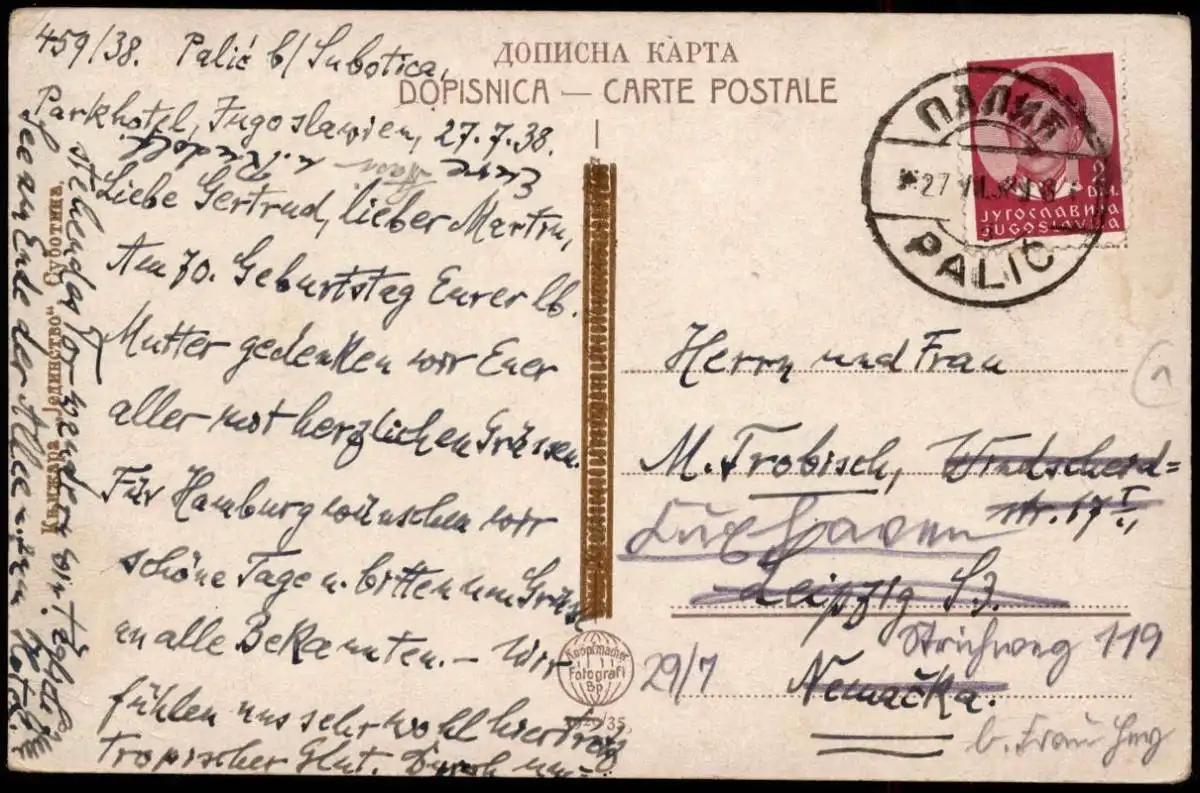 459/38. Palić b/ Subotica,
Parkhotel, Jugoslawien, 27.7.38.
Liebe Gertrud, lieber Martin,
Am 70. Geburtstag Eurer lb.
Mutter gedenken wir Euer
aller mit herzlichen Grüssen.
Für Hamburg wünschen wir
schöne Tage u. bitten um Grüsse
an alle Bekannten. – Wir
fühlen uns sehr wohl hier trotz
tropischer Glut. Durch
See am Ende der Allee
Књижара „Јединство“ Суботица
ДОПИСНА КАРТА
DOPISNICA — CARTE POSTALE
ПАЛИЋ
27 VII. 38
PALIĆ
2
DIN.
ЈУГОСЛАВИЈА
JUGOSLAVIJA
Herrn und Frau
M. Trobisch, Windscheid=
str. 17 I,
Cuxhaven
Leipzig S3.
Strichweg 119
29/7
Nemačka.
b. Frau
Knopfmacher
Fotografi
Bp.